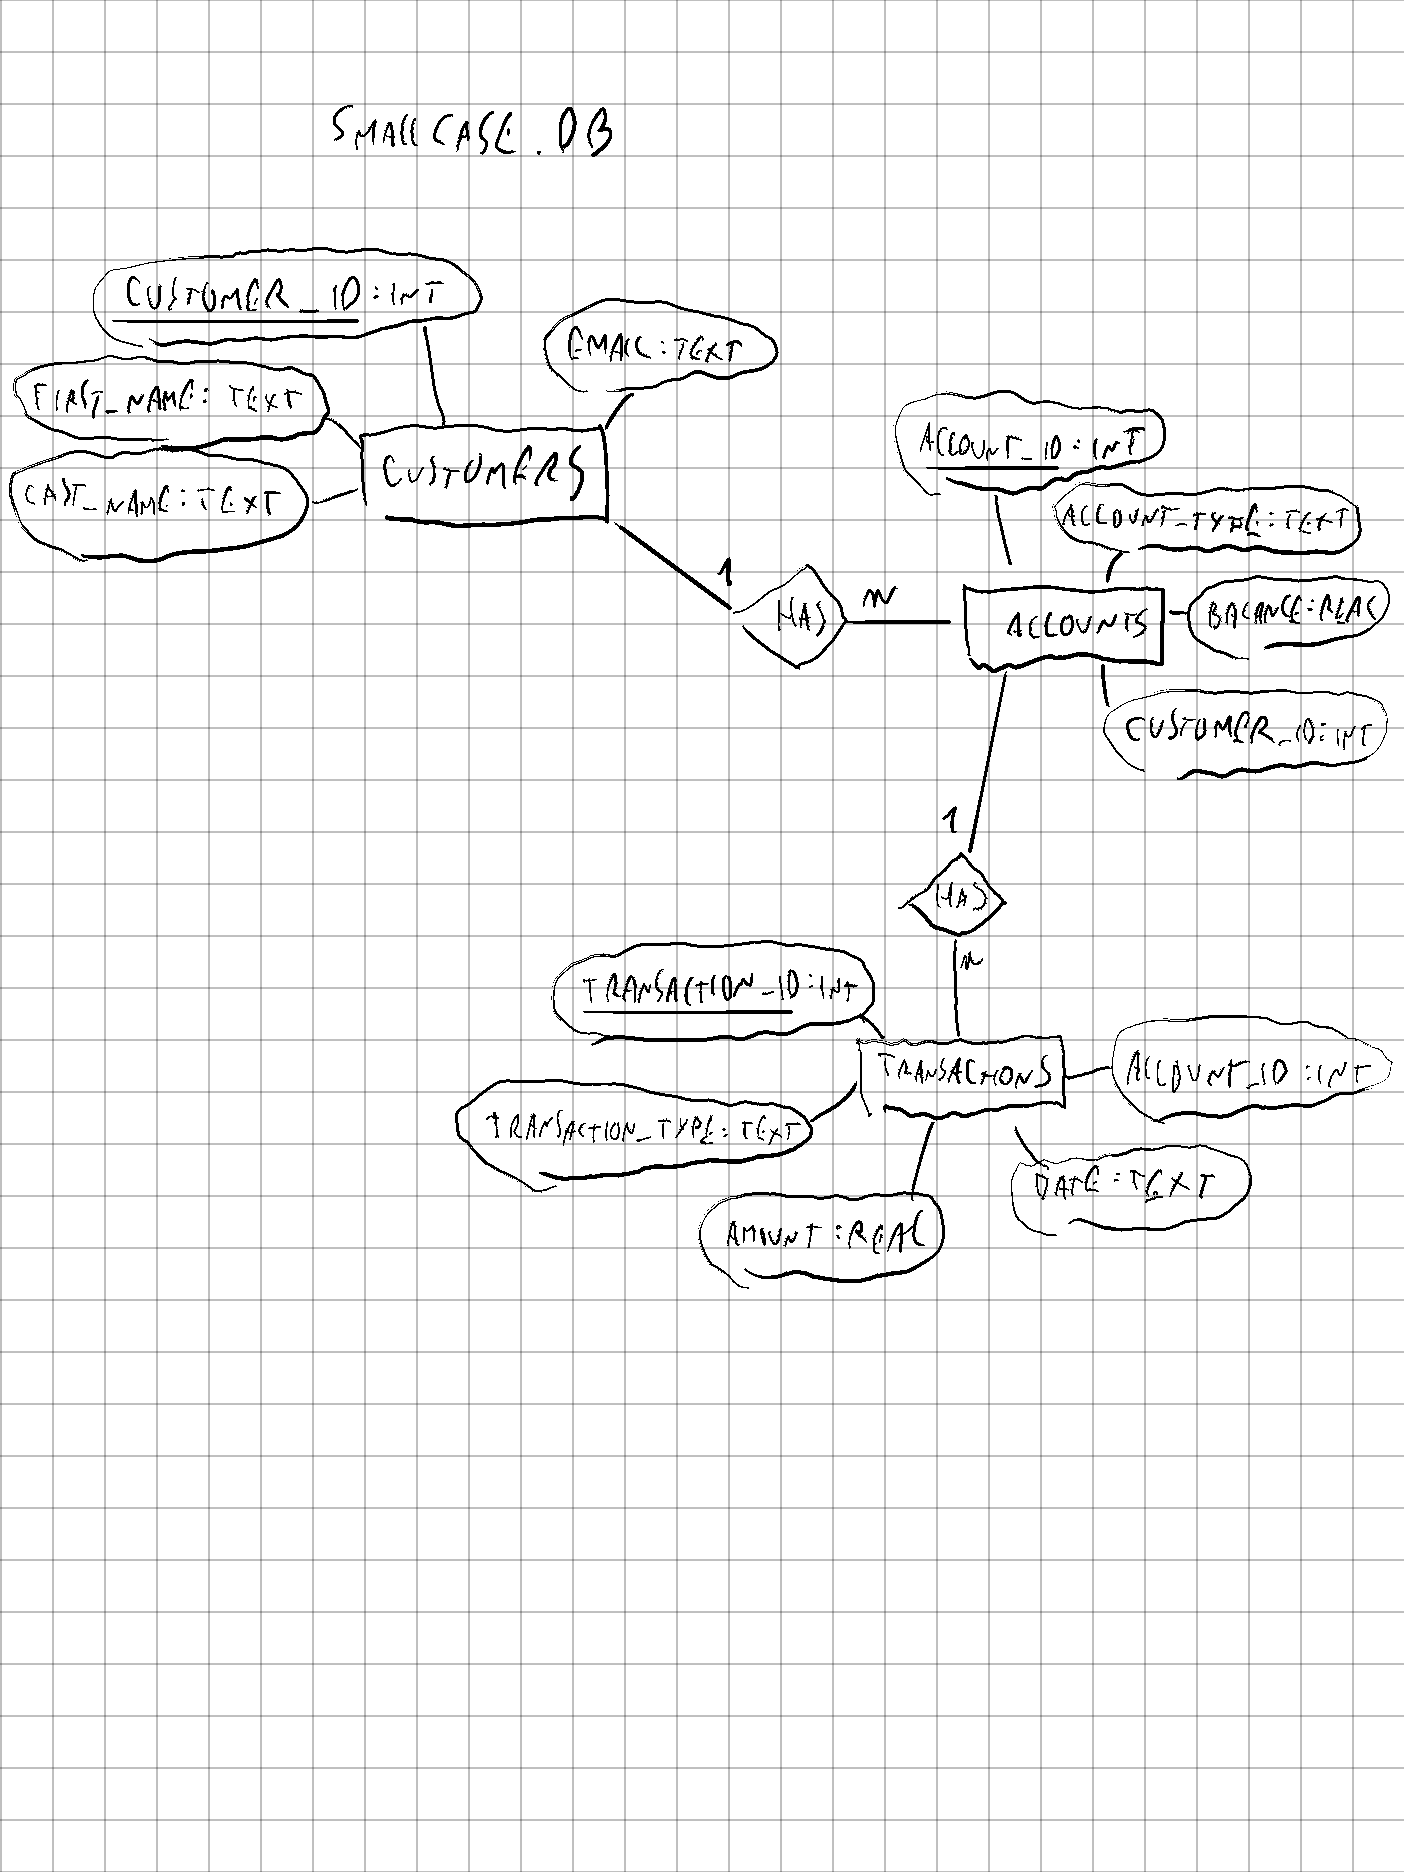 SMALLCASE.DB
CUSTOMER_ID:INT
EMAIL:TEXT
FIRST_NAME: TEXT
CUSTOMERS
LAST_NAME:TEXT
ACCOUNT_ID:INT
ACCOUNT_TYPE:TEXT
1
HAS
n
ACCOUNTS
BALANCE:REAL
CUSTOMER_ID:INT
1
HAS
n
TRANSACTION_ID:INT
TRANSACTIONS
ACCOUNT_ID:INT
TRANSACTION_TYPE:TEXT
DATE:TEXT
AMOUNT:REAL